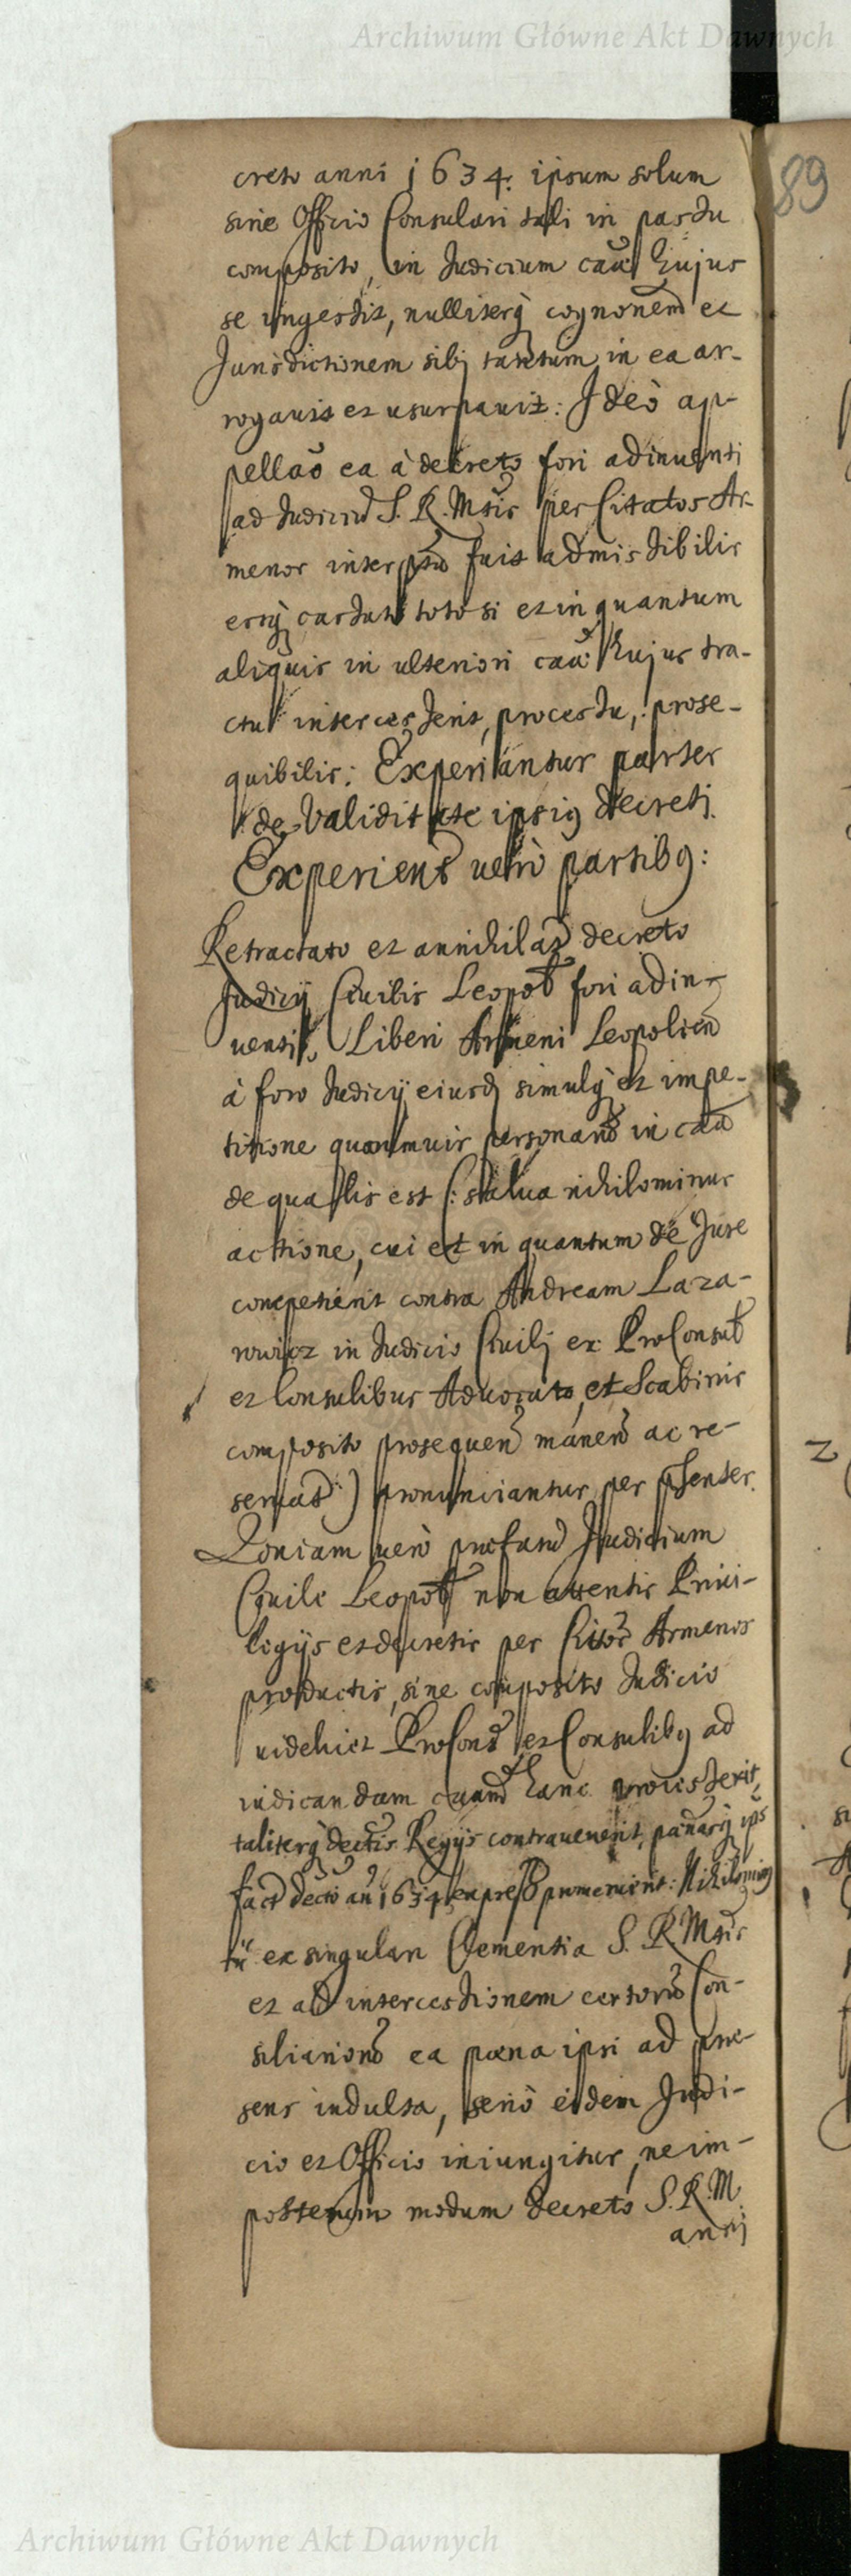 Archiwum Główne Akt Dawnych
89
creto anni 1634. ipsum solum
sine Officio Consulari tali in pastu
composito, in Judicium cau͠ hujus
se ingessit, nulliterq́ cognonem̄ et
Jurisdictionem sibj tantum in ea ar-
rogauit et usurpauit: Ideò ap-
pellaõ ea à decreto fori adinuenti
ad Judiciū S. R. Mtis per Citatos Ar-
menos interpta fuit admissibilis
estq́ cassata toto si et in quantum
aliquis in ulteriori cau͠ hujus tra-
ctu intercesserit, processu, prose-
quibilis: Experiantur partes
de Validitate ipsiꝰ decretj.
Experienʳ uerò partibꝰ:
Retractato et annihilaʳ decreto
Judicij Ciuilis Leopol fori adin-
uenti, Liberi Armeni Leopolien
à foro Judicij eiusd simulq́ et impe-
titione quamuis personarū in cau͠
de qua lis est (: salua nihilominus
actione, cui et in quantum de Jure
competierit contra Andream Laza-
rowicz in Judicio Ciuilj ex ProConsul
et Consulibus Aduocato, et Scabinis
composito prosequen manen ac re-
seruat:) pronunciantur per psentes.
Quoniam uerò præfatū Judicium
Ciuile Leopol non attentis Priui-
legijs et decretis per Citos Armenos
productis, sine composito Judicio
uidelicet ProCons et Consulibꝰ ad
iudicandam caum hanc processerit,
taliterq́ dectis Regijs contrauenerit, pænasq́ ips
fact decto an̄ 1634 express promeruerit: Nihilominꝰ
tn̄ ex singulari Clementia S. R. Mtis
et ad intercessionem certorū Con-
siliariorū ea pæna ipsi ad præ-
sens indulta, seriò eidem Judi-
cio et Officio iniungitur, ne im-
posterum modum decreto S. R. M.
annj
Archiwum Główne Akt Dawnych